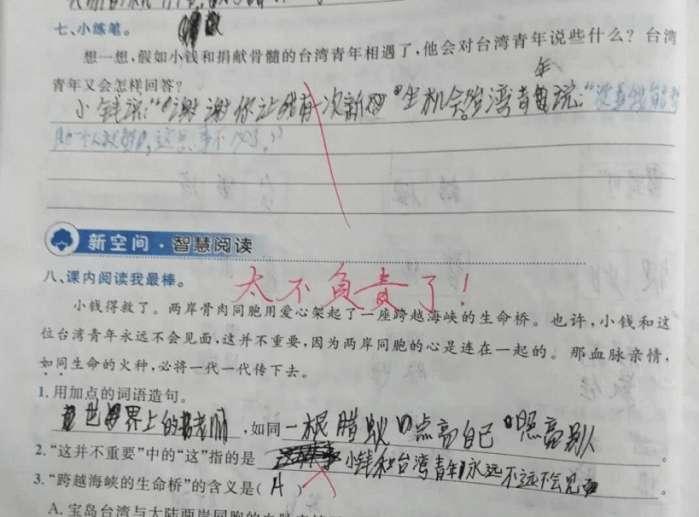 七、小练笔。
想一想,假如小钱和捐献骨髓的台湾青年相遇了,他会对台湾青年说些什么？台湾
青年又会怎样回答？
年
小钱说:“谢谢你让我有一次新的生机会。台湾青年说:“没
新空间·智慧阅读
太不负责了！
八、课内阅读我最棒。
小钱得救了。两岸骨肉同胞用爱心架起了一座跨越海峡的生命桥。也许,小钱和这
位台湾青年永远不会见面,这并不重要,因为两岸同胞的心是连在一起的。那血脉亲情,
如同生命的火种,必将一代一代传下去。
1.用加点的词语造句。
世界上的老师,如同一根腊蚁点亮自己照亮别人。
2.“这并不重要”中的“这”指的是小钱和台湾青年永远不会见面。
3.“跨越海峡的生命桥”的含义是(A)
A.宝岛台湾与大陆两岸同胞的